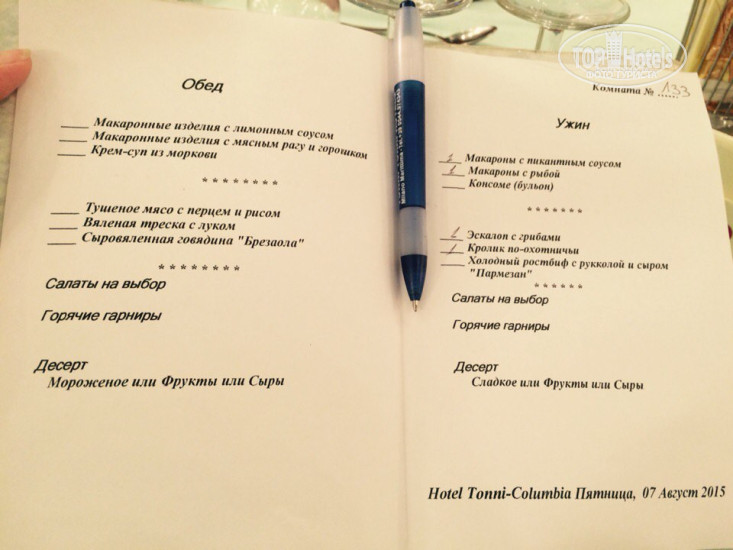 TOP Hotels
ФОТО ТУРИСТА
Обед
Макаронные изделия с лимонным соусом
Макаронные изделия с мясным рагу и горошком
Крем-суп из моркови
* * * * * * * *
Тушеное мясо с перцем и рисом
Вяленая треска с луком
Сыровяленная говядина "Брезаола"
* * * * * * * *
Салаты на выбор
Горячие гарниры
Десерт
Мороженое или Фрукты или Сыры
Комната № 133
Ужин
1 Макароны с пикантным соусом
1 Макароны с рыбой
Консоме (бульон)
* * * * * * *
1 Эскалоп с грибами
1 Кролик по-охотничьи
Холодный ростбиф с рукколой и сыром
"Пармезан"
* * * * * *
Салаты на выбор
Горячие гарниры
Десерт
Сладкое или Фрукты или Сыры
Hotel Tonni-Columbia Пятница, 07 Август 2015
Milano Marittima